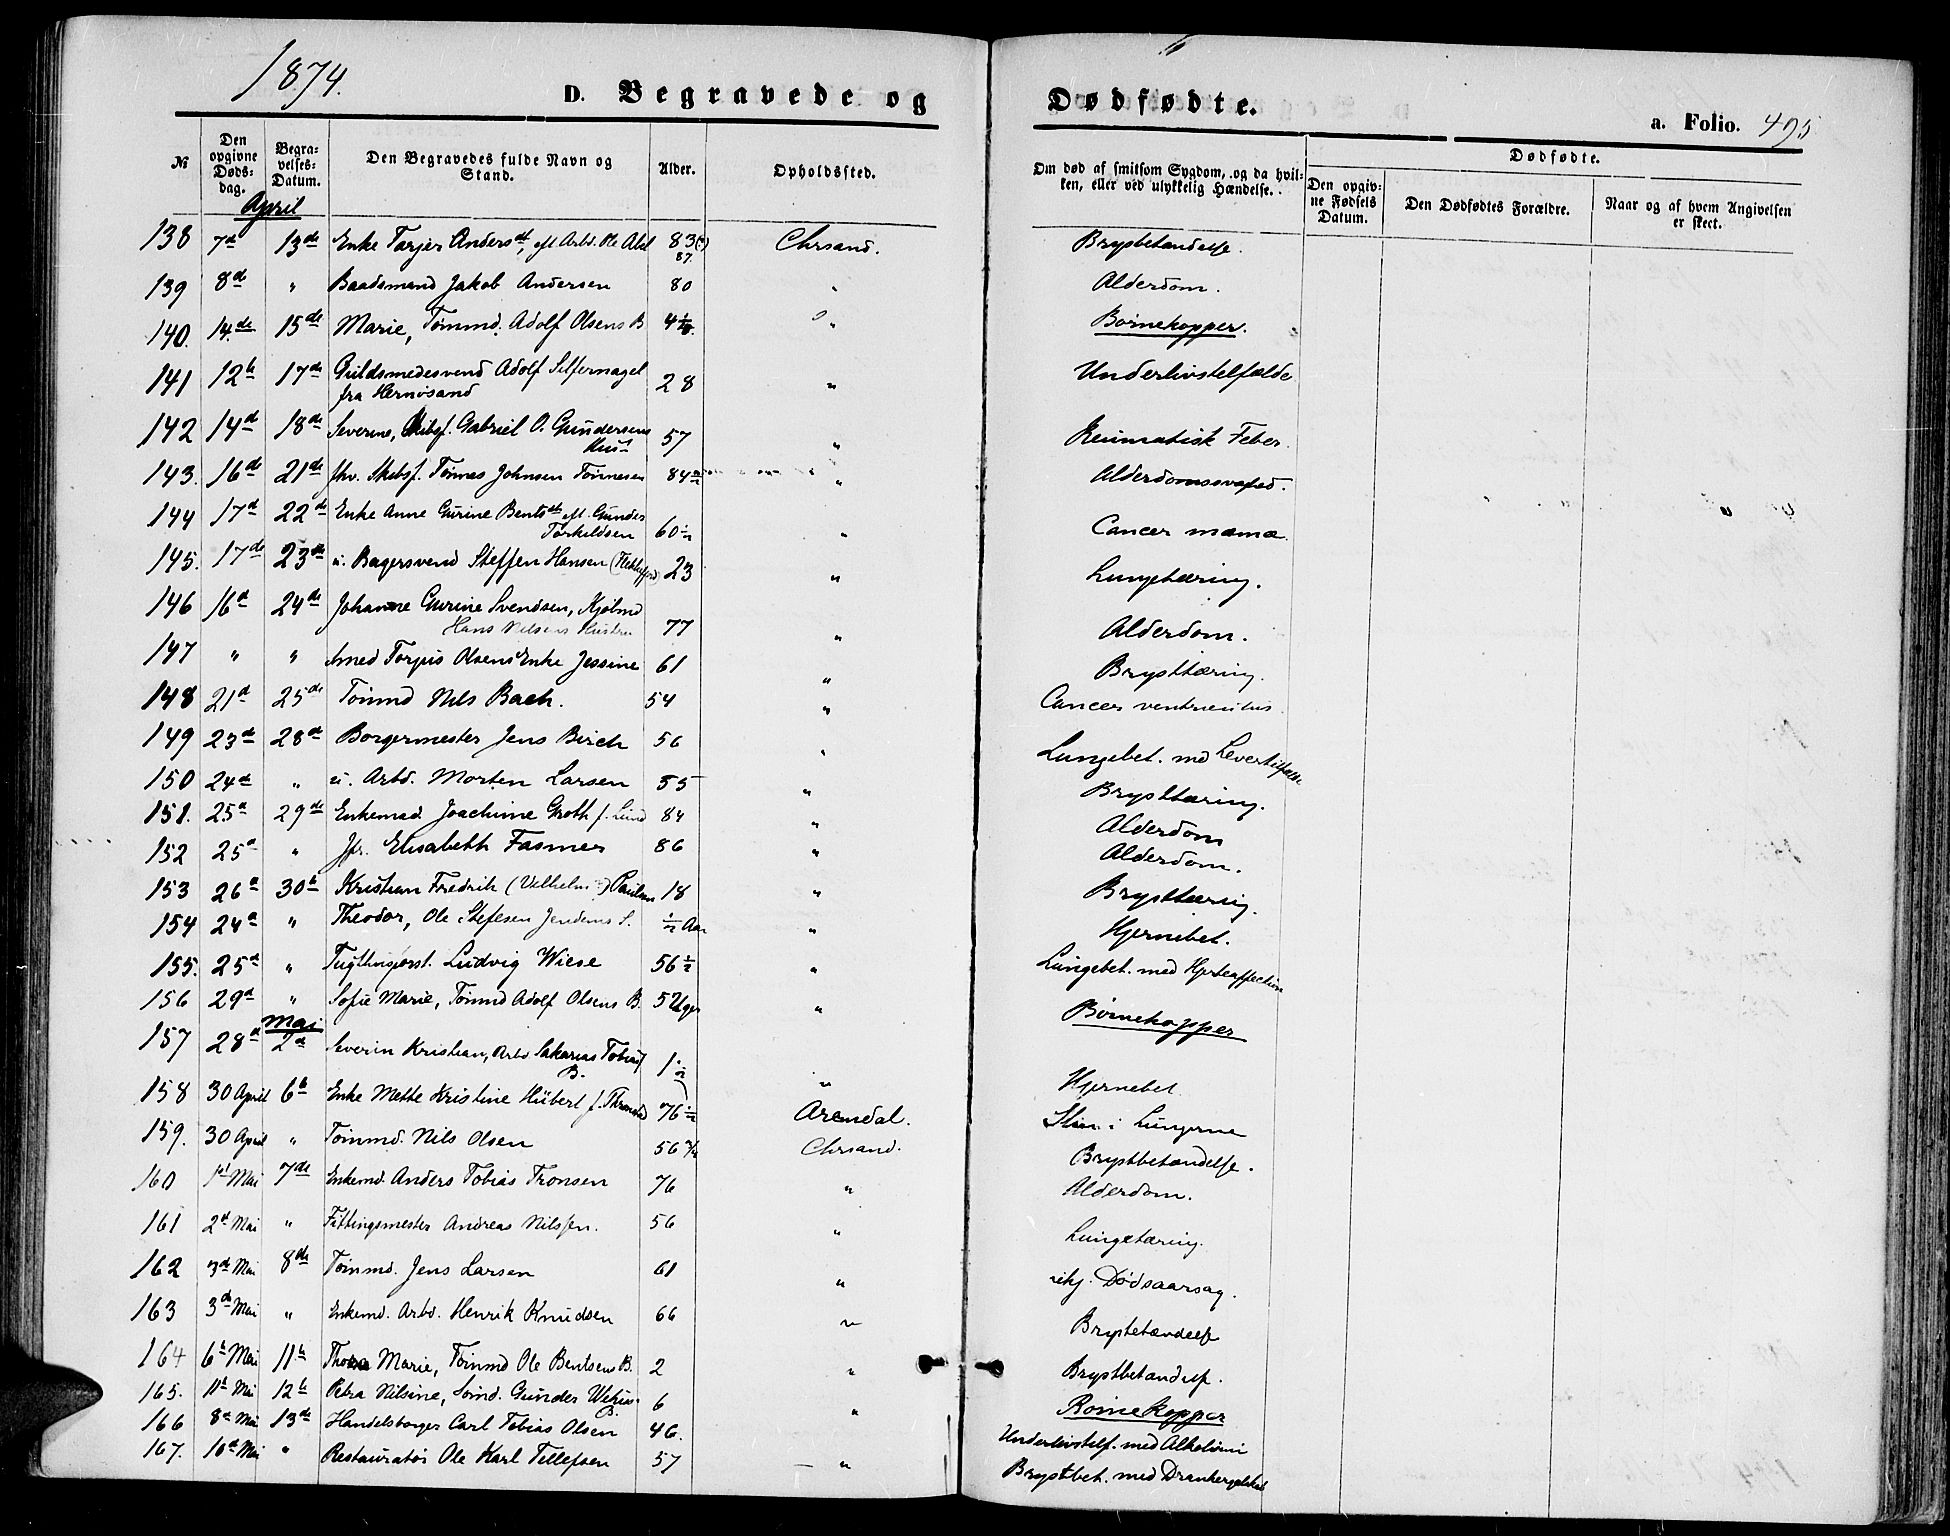 1874.
D. Begravede og Dødfødte.
a. Folio. 495
№ | Den opgivne Dødsdag. | Begravelses-Datum. | Den Begravedes fulde Navn og Stand. | Alder. | Opholdssted. | Om død af smitsom Sygdom, og da hvilken, eller ved ulykkelig Hændelse. | Dødfødte. | Den opgivne Fødsels Datum. | Den Dødfødtes Forældre. | Naar og af hvem Angivelsen er skeet.
April
138 7d 13de Enke Tarjer Andersdt, eft Arbd. Ole Abel 83(?) 87. Chrsand. Brystbetændelse.
139 8de " Baadsmand Jakob Andersen 80 " Alderdom.
140. 14de 15de Marie, Tømmd. Adolf Olsens B. 4 " Børnekopper.
141 12te 17de Guldsmedesvend Adolf Silfernagel
fra Hernösand 28 " Underlivstilfælde
142 14de 18de Severine, Skibsf. Gabriel O. Gundersens
Hust 57 " Reumatisk Feber.
143. 16de 21de fhv. Skibsf. Tönnes Johnsen Tönnesen 84½ " Alderdomssvaghed.
144 17de 22de Enke Anne Gurine Bentsdt eft. Gunder
Torkildsen 60½ " Cancer mama.
145. 17de 23de u. Bagersvend Steffen Hansen (Flekkefjord) 23 " Lungetæring.
146 16d 24de Johanne Gurine Svendsen, Kjølmd
Hans Nilsens Hustru 77 " Alderdom.
147 " " Smed Torjus Olsens Enke Jessine 61 " Brysttæring.
148 21d 25de Tømmd Nils Bach. 54 " Cancer ventriculus
149 23de 28de Borgermester Jens Birch 56 " Lungebet. md Levertilfælde
150 24de " u. Arbd. Morten Larsen 55 " Brysttæring.
151. 25d 29de Enkemad. Joachime Groth f. Lund 84 " Alderdom
152 25d " Jfr. Elisabeth Fasmer 86 " Alderdom.
153 26d 30te Kristian Fredrik (Vilhelm ?) Paulsen 18 " Brysttæring.
154 24d " Theodor, Ole Stefesen Jendems S. ½ Aar " Hjernebet.
155. 25d " Tugthusforst. Ludvig Wiese 56½ " Lungebet. med Hjerteaffection
156 29d " Sofie Marie, Tømmd Adolf Olsens B. 5 Uger " Børnekopper
Mai
157 28d 2d Severin Kristian, Arbd Sakarias Tobias
B. 1½ " Hjernebet.
158 30 April 6te Enke Mette Kristine Hübert f. 76½ Arendal. Sliim i Lungerne
159. 30 April " Tømmd. Nils Olsen 56 Chrsand. Brystbetændelse.
160 1st Mai 7de Enkemd. Anders Tobias Tronsen 76 " Alderdom.
161 2d Mai " Fittingsmester Andreas Nilssen. 56 " Lungetæring.
162 3d Mai 8de Tømmd. Jens Larsen 61 " Dödsaarsag.
163 3d Mai " Enkemd. Arbd. Henrik Knudsen 66 " Brystbetændelse
164 6te Mai 11te Thora Marie, Tømmd Ole Bentsens B. 2 " Brystbetændelse.
165. 11te Mai 12te Petra Nilsine, Sømd. Gunder
B. 6 " Børnekopper
166 8de Mai 13de Handelsborger Carl Tobias Olsen 46. Underlivstilf. med Alkolismi
167. 10de Mai " Restauratør Ole Karl Tellefsen 57 " Brystbet. med Drankergalskab